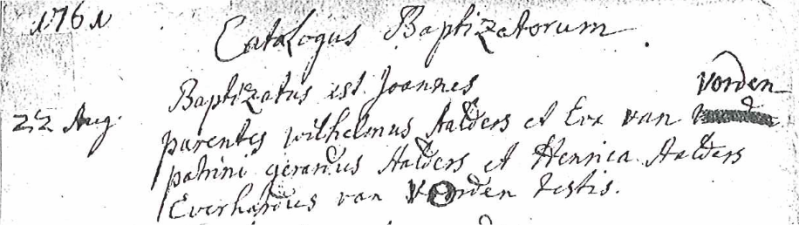 1761
Catalogus Baptizatorum.
22 Aug. Baptizatus est Joannes
parentes wilhelmus Aalders et Eva van Vorden
patrini gerardus Aalders et Henrica Aalders
Everhardus van Vorden testis.